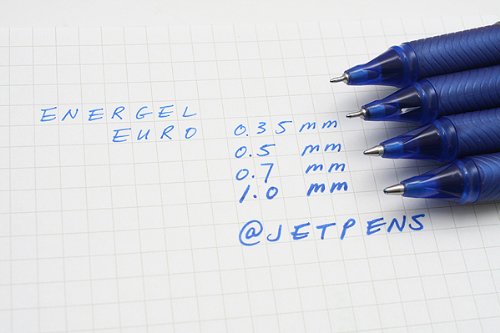 ENERGEL
EURO
0.35 mm
0.5 mm
0.7 mm
1.0 mm
@JETPENS